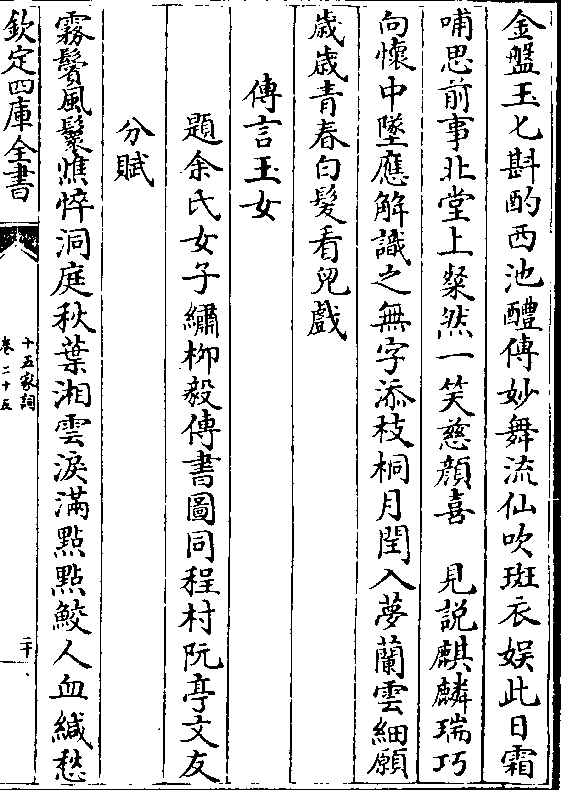 金盤玉匕斟酌西池醴傳妙舞流仙吹斑衣娱此日霜
哺思前事北堂上粲然一笑慈顔喜　見説麒麟瑞巧
向懷中墜應解識之無字添枝桐月閏入夢蘭雲細願
歲歲青春白髮看兒戲
傳言玉女
題余氏女子繡栁毅傳書圖同程村阮亭文友
分賦
霧鬢風鬟憔悴洞庭秋葉湘雲淚滿點點鮫人血緘愁
欽定四庫全書
十五家詞
卷二十五
二十